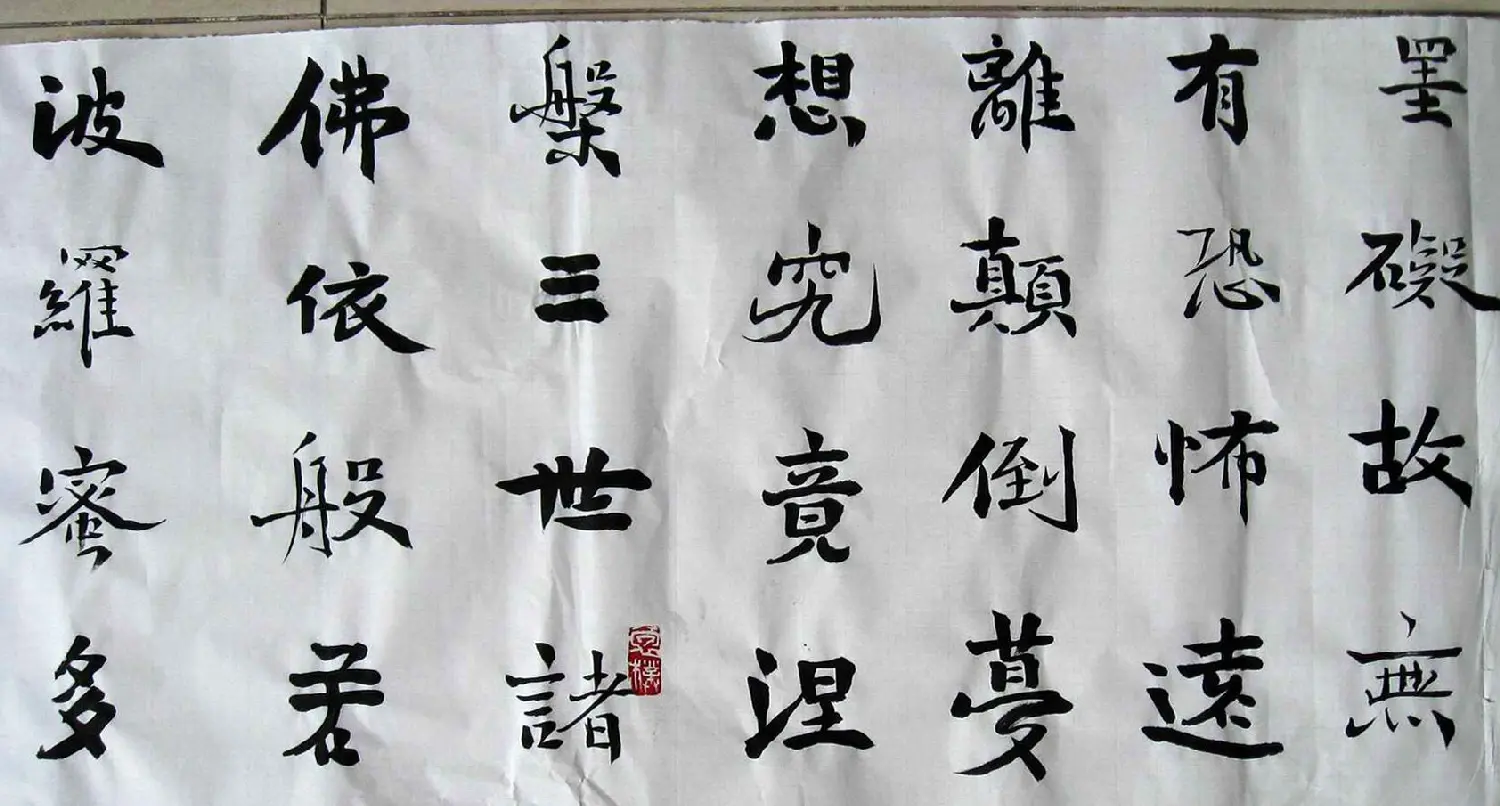 罣礙故無
有恐怖遠
離顛倒夢
想究竟涅
槃三世諸
佛依般若
波羅蜜多